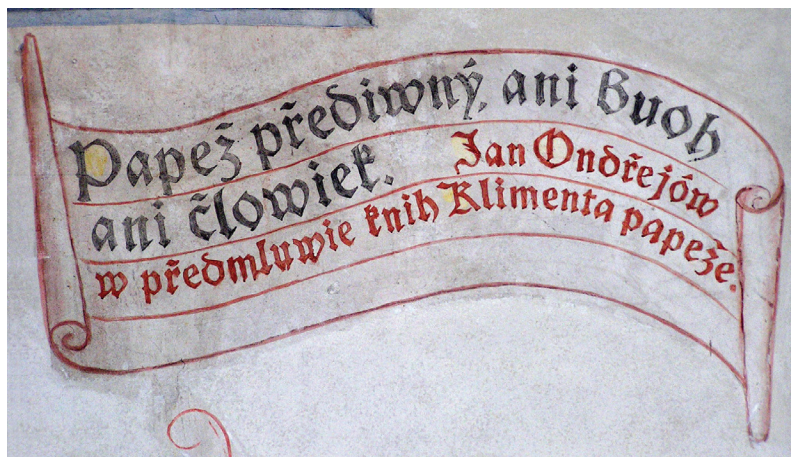 Papež přediwný, ani Buoh
ani člowiek. Jan Ondřejów
w předmluwie knih Klimenta papeže.